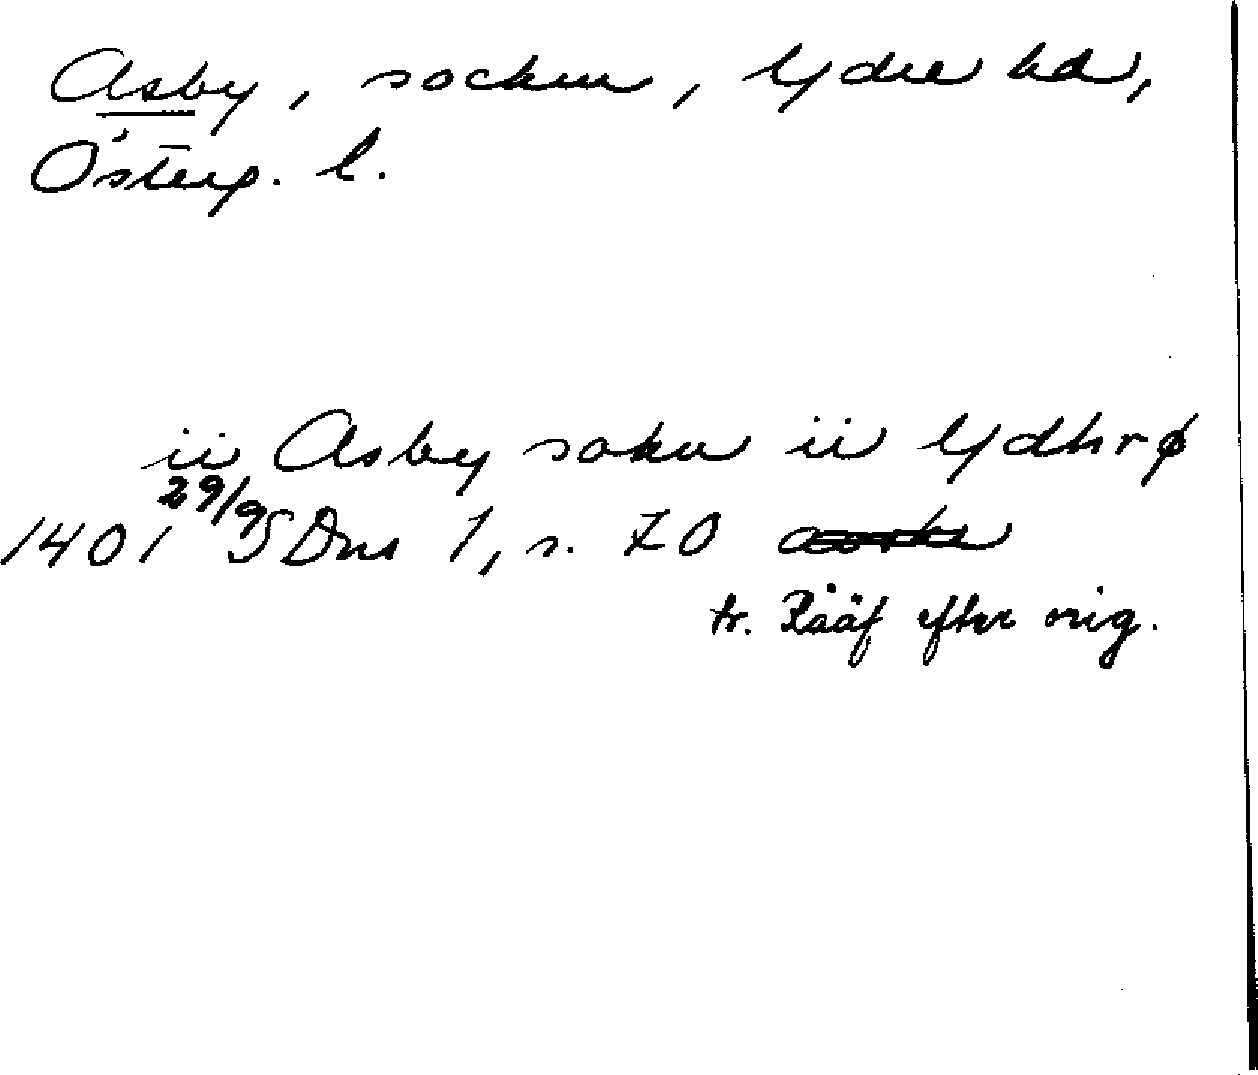 Asby, socken, Ydre hd,
Österg. l.
ii Asby sokn ii Ydhrø
1401 29/9 SDns 1, s. 70
tr. Rääf efter orig.